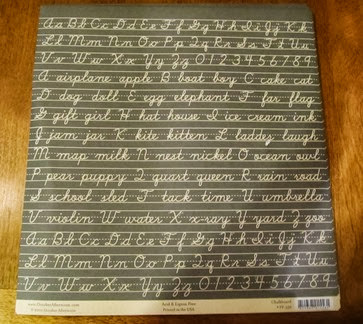 Aa Bb Cc Dd Ee Ff Gg Hh Ii Jj Kk
Ll Mm Nn Oo Pp Qq Rr Ss Tt Uu
Vv Ww Xx Yy Zz 0 1 2 3 4 5 6 7 8 9
A airplane apple B boat boy C cake cat
D dog doll E egg elephant F far flag
G gift girl H hat house I ice cream ink
J jam jar K kite kitten L ladder laugh
M map milk N nest nickel O ocean owl
P pear puppy Q quart queen R rain road
S school sled T tack time U umbrella
V violin W water X x-ray Y yard Z zoo
Aa Bb Cc Dd Ee Ff Gg Hh Ii Jj Kk
Ll Mm Nn Oo Pp Qq Rr Ss Tt Uu
Vv Ww Xx Yy Zz 0 1 2 3 4 5 6 7 8 9
Acid & Lignin Free
Chalkboard
Printed in the USA